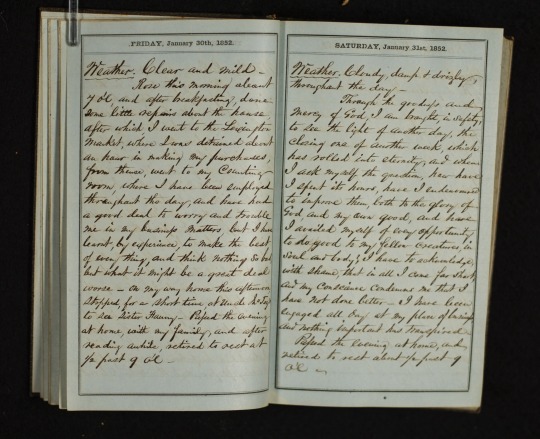 FRIDAY, January 30th, 1852.
Weather. Clear and mild –
Rose this morning about
7 oC, and after breakfasting, done
some little repairs about the house
after which I went to the Lexington
Market, where I was detained about
an hour in making my purchases,
from thence, went to my Counting
room, where I have been employed
throughout the day, and have had
a good deal to worry and trouble
me in my business matters, but I have
learnt, by experience, to make the best
of every thing, and think nothing so bad
but what it might be a great deal
worse – on my way home this afternoon
stopped, for a short time at
to see Sister Fanny – Passed the evening
at home, with my family, and after
reading awhile, retired to rest at
½ past 9 oC –
SATURDAY, January 31st, 1852.
Weather. Cloudy, damp & drizly,
throughout the day, –
Through the goodness and
Mercy of God, I am brought, in safety,
to see the light of another day, the
closing one of another week, which
has rolled into eternity, and when
I ask myself the question, how have
I spent its hours, have I endeavoured
to improve them, both to the glory of
God and my own good, and have
I availed myself of every opportunity
to do good to my fellow Creatures, in
Soul and body, I have to acknowledge,
with shame, that in all I come far short
and my Conscience condemns me that I
have not done better – I have been
engaged all day at my place of business
and nothing important has transpired –
Passed the evening at home, and
retired to rest about ½ past 9
oC –